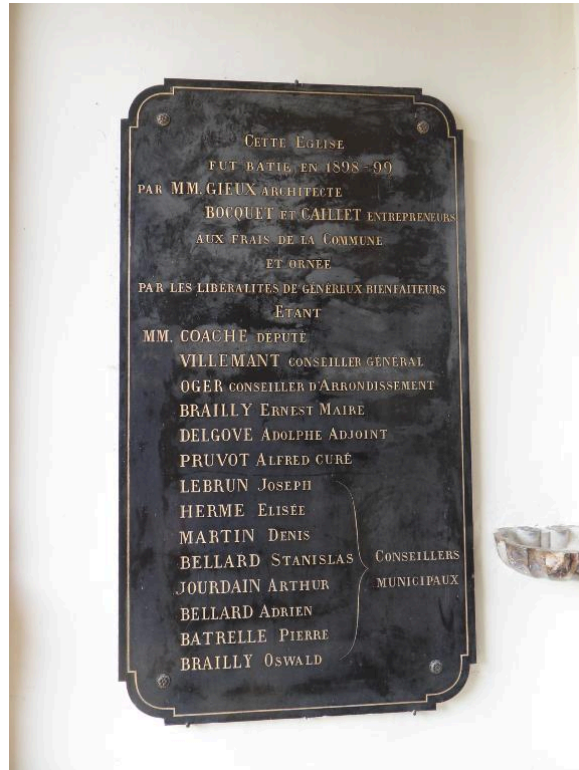 CETTE EGLISE
FUT BATIE EN 1898-99
PAR MM. GIEUX ARCHITECTE
BOCQUET ET CAILLET ENTREPRENEURS
AUX FRAIS DE LA COMMUNE
ET ORNÉE
PAR LES LIBÉRALITÉS DE GÉNÉREUX BIENFAITEURS
ETANT
MM. COACHE DÉPUTÉ
VILLEMANT CONSEILLER GÉNÉRAL
OGER CONSEILLER D'ARRONDISSEMENT
BRAILLY ERNEST MAIRE
DELGOVE ADOLPHE ADJOINT
PRUVOT ALFRED CURÉ
LEBRUN JOSEPH
HERME ELISÉE
MARTIN DENIS
BELLARD STANISLAS
JOURDAIN ARTHUR
BELLARD ADRIEN
BATRELLE PIERRE
BRAILLY OSWALD
CONSEILLERS
MUNICIPAUX